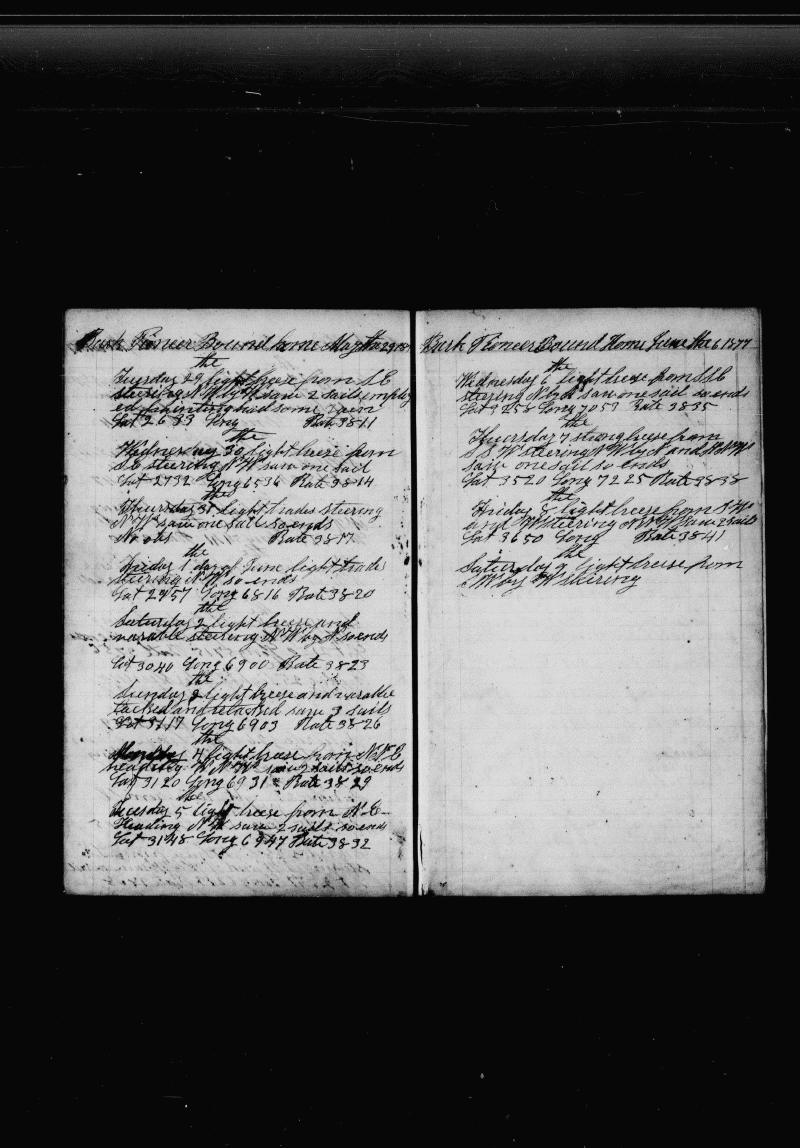 Bark Pioneer Bound home May the 29 187
the
Tuesday 29 light breese from S E
steering N W by W saw 2 sails employ
ed painting had some rain
Lat 2633 Long Rate 3811
the
Wednesday 30 light breese from
S E steering N W saw one sail
Lat 2732 Long 6536 Rate 3814
the
Thursday 31 light trades steering
N W saw one sail so ends
No obs Rate 3817
the
Friday 1 day of June light trades
steering N W so ends
Lat 2957 Long 6816 Rate 3820
the
Saturday 2 light breese and
varable steering N W by N so ends
Lat 3040 Long 6900 Rate 3823
the
Sunday 3 light breese and varable
tacked and retacked saw 3 sails
Lat 3117 Long 6903 Rate 3826
the
Monday 4 light breese from N N E
heading W N W saw 2 sails so ends
Lat 3120 Long 6931 Rate 3829
the
Tuesday 5 light breese from N E
Heading N W saw 2 sails so ends
Lat 3148 Long 6947 Rate 3832
Bark Pioneer Bound Home June the 6 1877
the
Wednesday 6 light breese from S S E
steering N by W saw one sail so ends
Lat 3258 Long 7053 Rate 3835
the
Thuersday 7 strong breese from
S S W steering N W by N and N N W
saw one sail so ends
Lat 3520 Long 7225 Rate 3838
the
Friday 8 light breese from S W
and W steering N N W saw 2 sails
Lat 3650 Long Rate 3841
the
Saturday 9 light breese from
W by W stering